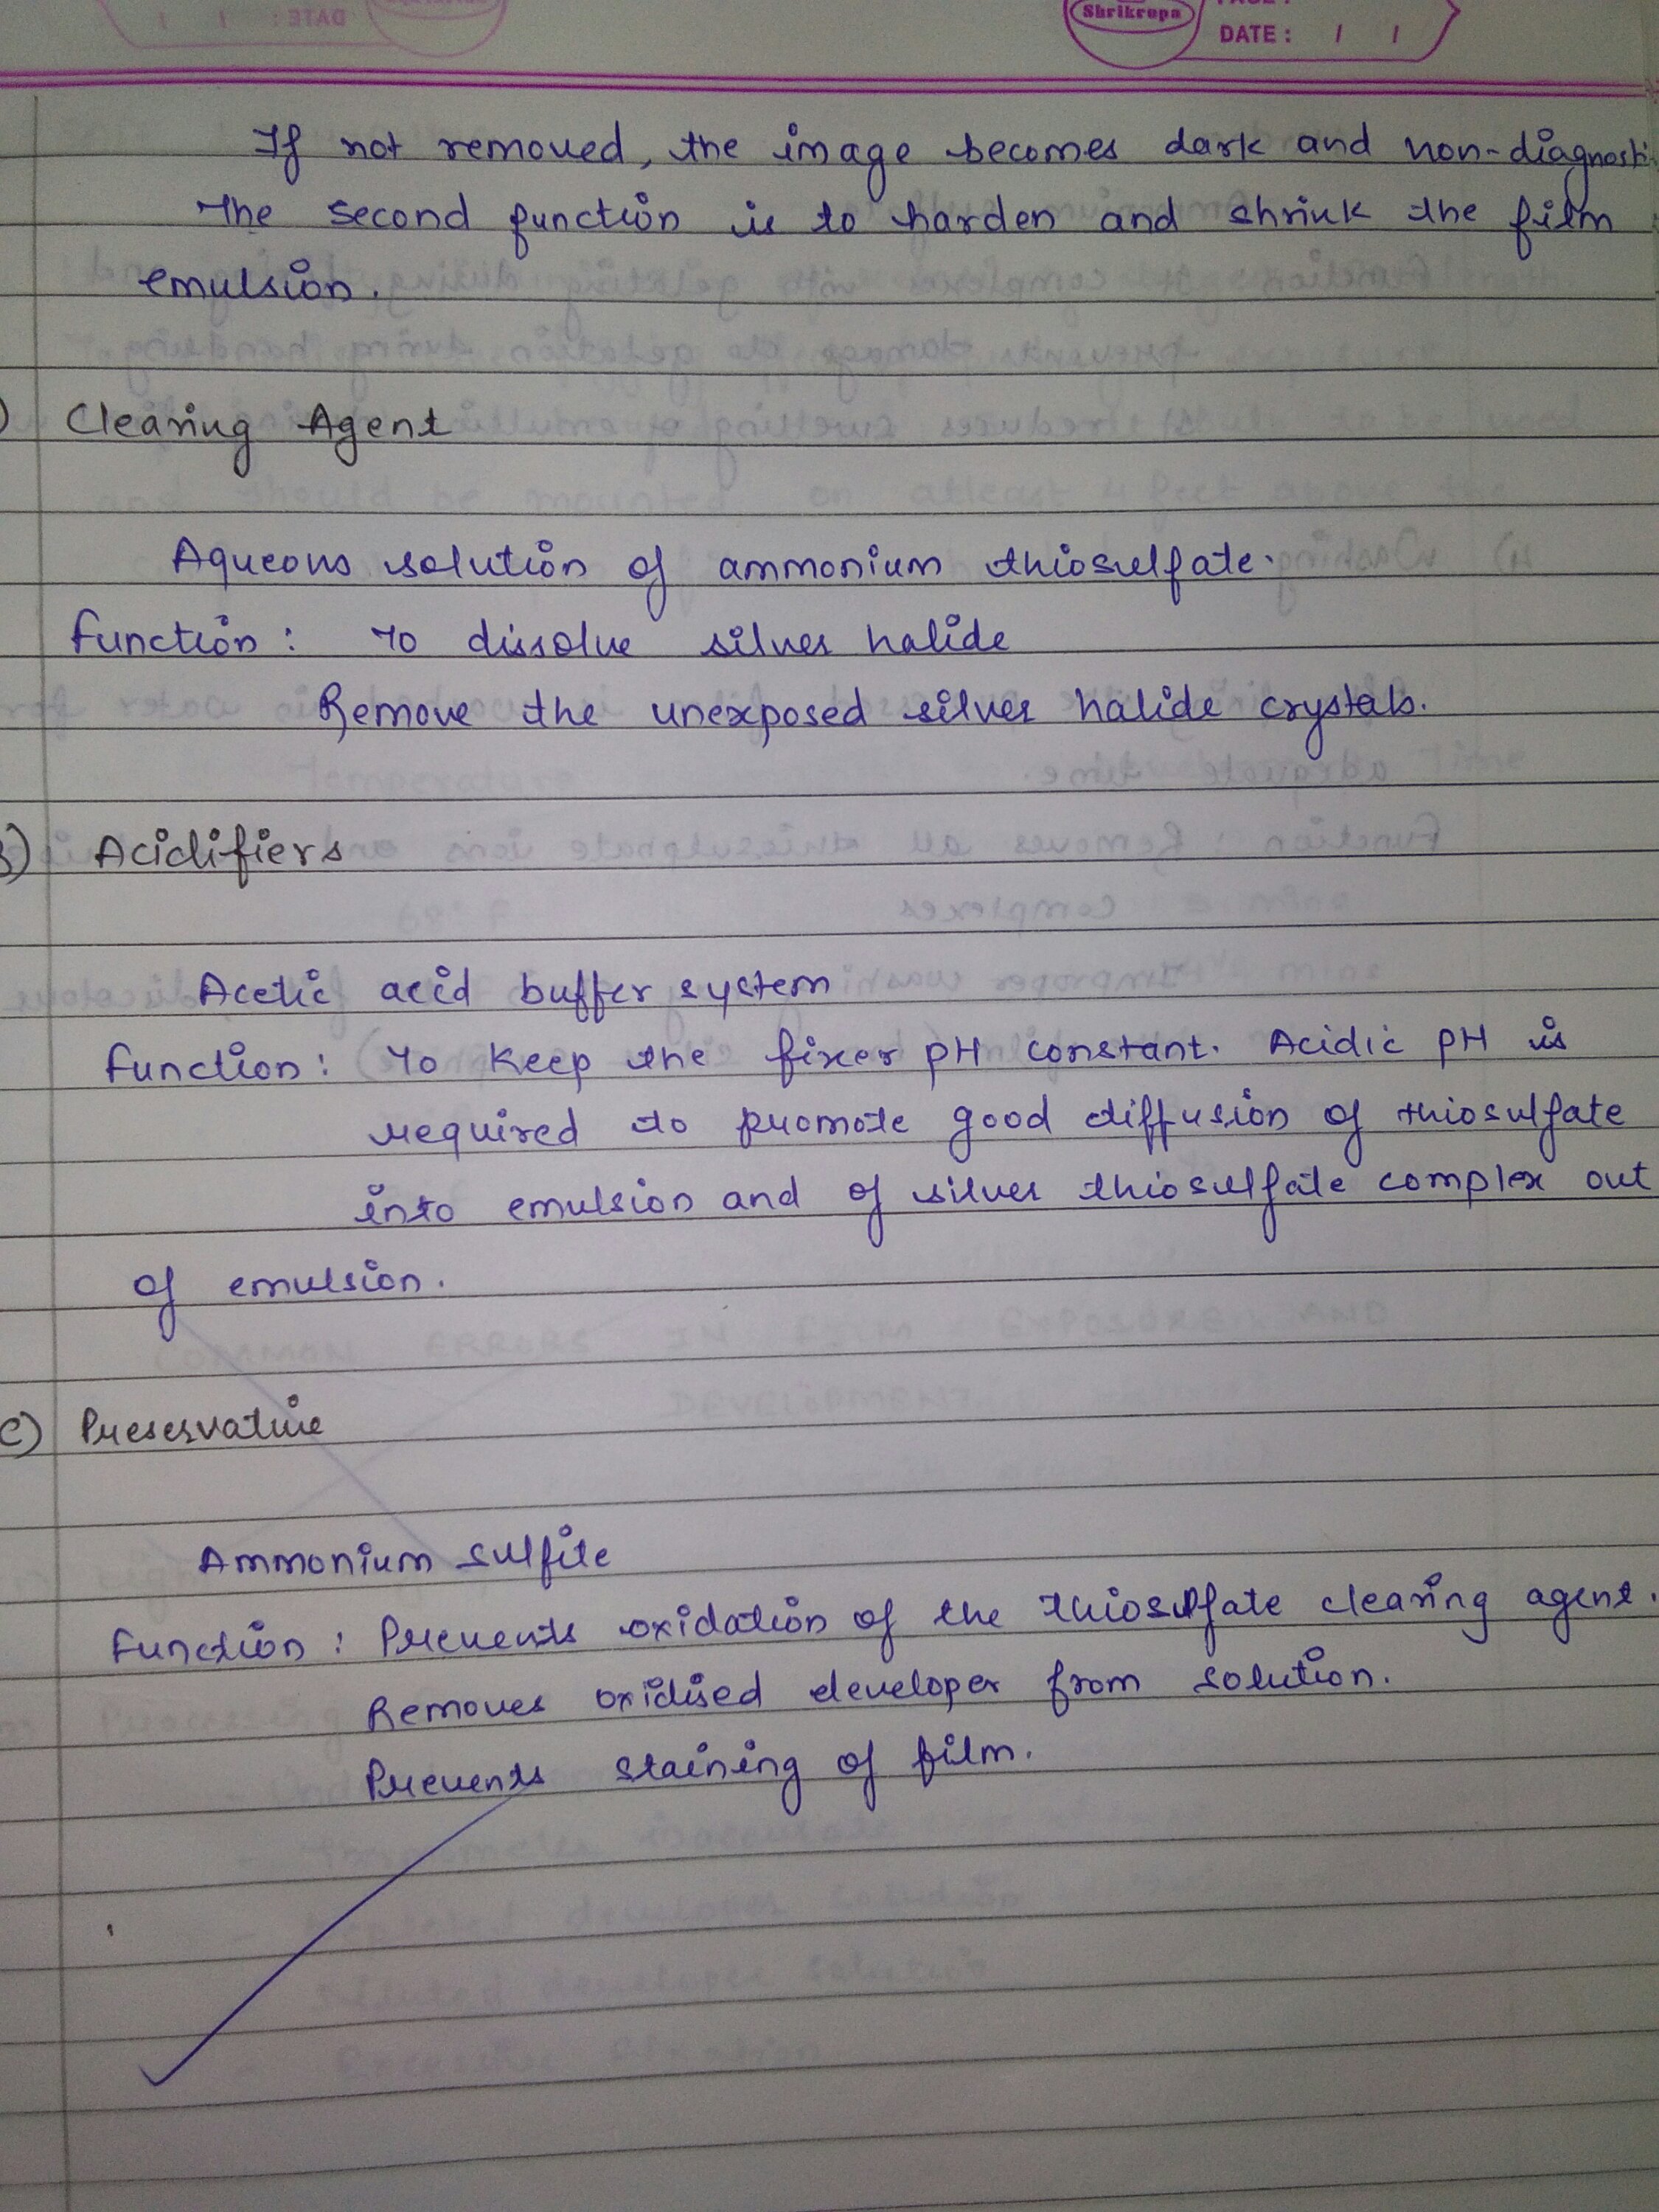 Shrikrupa
DATE : / /
If not removed, the image becomes dark and non-diagnosti
The second function is to harden and shrink the film
emulsion.
) Clearing Agent
Aqueous solution of ammonium thiosulfate.
Function : To dissolve silver halide
Remove the unexposed silver halide crystals.
B) Acidifiers
Acetic acid buffer system
Function : To keep the fixer pH constant. Acidic pH is
required to promote good diffusion of thiosulfate
into emulsion and of silver thiosulfate complex out
of emulsion.
C) Preservative
Ammonium sulfite
Function : Prevents oxidation of the thiosulfate clearing agent.
Removes oxidised developer from solution.
Prevents staining of film.